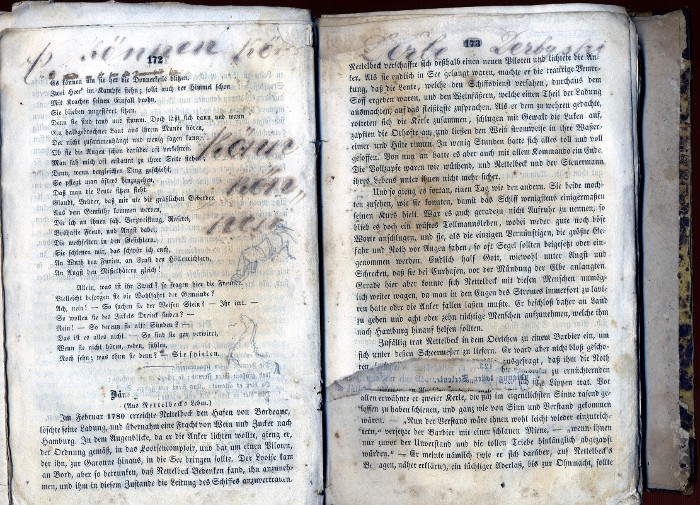 172
So können An sie her die Donnerkeile blitzen,
Zwei Heer' in Kämpfe stehn; sollt auch der Himmel schon
Mit Krachen seinen Einfall drohn,
Sie blieben ungestört sitzen.
Denn sie sind taub und stumm. Doch läßt sich dann und wann
Ein halbgebrochner Laut aus ihrem Munde hören,
Der nicht zusammenhängt und wenig sagen kann,
Ob sie die Augen schon darüber oft verkehren.
Man sah mich oft erstaunt zu ihrer Seite stehen;
Denn, wenn dergleichen Ding geschieht,
So pflegt man öfters hinzugehen,
Daß man die Leute sitzen sieht.
Glaubt, Brüder, daß mir nie die gräßlichen Geberden
Aus dem Gemüthe kommen werden,
Die ich an ihnen sah. Verzweiflung, Raserei,
Boshafte Freud, und Angst dabei,
Die wechselten in den Gesichtern.
Sie schienen mir, das schwör ich euch,
An Wuth den Furien, an Ernst den Höllenrichtern,
An Angst den Missethätern gleich!
Allein, was ist ihr Zweck? so fragen hier die Freunde.
Vielleicht besorgen sie die Wohlfahrt der Gemeinde?
Ach, nein! — So suchen sie der Weisen Stein? — Ihr irrt. —
So wollen sie des Zirkels Viereck finden? —
Nein! — So bereun sie alte Sünden? —
Das ist es alles nicht. — So sind sie gar verwirrt,
Wenn sie nicht hören, reden, fühlen,
Noch sehn; was thun sie denn? — Sie spielen.
(Aus Nettelbeck's Leben.)
Im Februar 1780 erreichte Nettelbeck den Hafen von Bordeaux,
löschte seine Ladung, und übernahm eine Fracht von Wein und Zucker nach
Hamburg. In dem Augenblicke, da er die Anker lichten wollte, gieng er,
der Ordnung gemäß, in das Lootsencomptoir, und bat um einen Piloten,
der ihn, zur Garonne hinaus, in die See bringen sollte. Der Lootse kam
an Bord, aber so betrunken, daß Nettelbeck Bedenken fand, ihn anzuneh=
men, und ihm in diesem Zustande die Leitung des Schiffes anzuvertrauen.
173
Nettelbeck verschaffte sich deßhalb einen neuen Piloten und lichtete die An=
ker. Als sie endlich in See gelangt waren, machte er die traurige Bemer=
kung, daß die Leute, welche den Schiffsdienst versahen, durchaus dem
Soff ergeben waren, und den Weinfässern, welche einen Theil der Ladung
ausmachten, auf das fleißigste zusprachen. Als er dem zu wehren gedachte,
rotteten sich die Kerle zusammen, schlugen mit Gewalt die Luken auf,
zapften die Oxhofte an, und ließen den Wein stromweise in ihre Wasser=
eimer und Hüte rinnen. In wenig Stunden hatte sich alles toll und voll
gesoffen. Von nun an hatte es aber auch mit allem Kommando ein Ende.
Die Vollzapfe waren wie wüthend, und Nettelbeck und der Steuermann
ihres Lebens unter ihnen nicht mehr sicher.
Und so gieng es fortan, einen Tag wie den andern. Sie beide moch=
ten zusehen, wie sie konnten, damit das Schiff wenigstens einigermaßen
seinen Kurs hielt. War es auch geradezu nicht Aufruhr zu nennen, so
blieb es doch ein wüstes Tollmannsleben, wobei weder gute noch böse
Worte anschlugen, und sie, als die einzigen Vernünftigen, die größte Ge=
fahr und Noth vor Augen sahen, so oft Segel sollten beigesetzt oder ein=
genommen werden. Endlich half Gott, wiewohl unter Angst und
Schrecken, daß sie bei Cuxhafen, vor der Mündung der Elbe anlangten.
Gerade hier aber konnte sich Nettelbeck mit diesen Menschen unmög=
lich weiter wagen, da man in den Engen des Stromes immerfort zu lavie=
ren hatte oder die Anker fallen lassen mußte. Er beschloß daher an Land
zu gehen und acht oder zehn nüchtige Menschen aufzunehmen, welche ihm
nach Hamburg hinauf helfen sollten.
Zufällig trat Nettelbeck in dem Oertchen zu einem Barbier ein, um
sich unter dessen Scheermesser zu liefern. Er ward aber nicht bloß gescho=
ausgefragt, daß ihm die Noth
zu ernüchternden
Lippen trat. Vor
allem erwähnte er zweier Kerle, die sich im eigentlichsten Sinne rasend ge=
soffen zu haben schienen, und ganz wie von Sinn und Verstand gekommen
wären. — „Nun der Verstand wäre ihnen wohl leicht wieder einzutrich=
tern,“ versetzte der Barbier mit einer schlauen Miene, — „wenn ihnen
nur zuvor der Unverstand und die tollen Triebe hinlänglich abgezapft
würden.“ — Er meinte nämlich (wie er sich darüber, auf Nettelbeck's
näher erklärte), ein tüchtiger Aderlaß, bis zur Ohnmacht, sollte